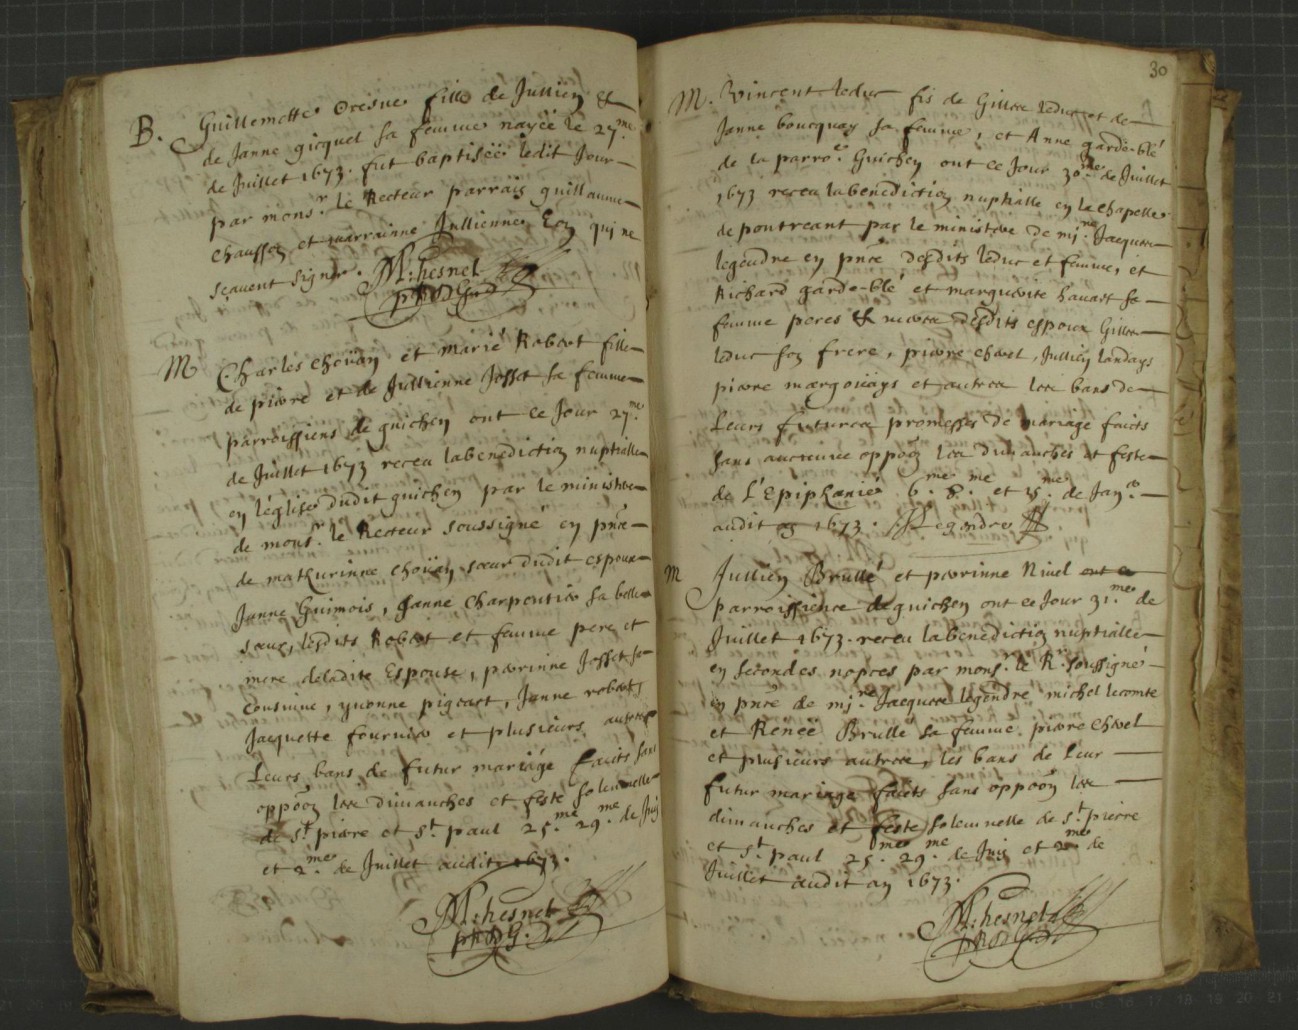 B. Guillemette Dresne fille de Jullien et
de Janne gicquel sa femme nayëe le 27.me
de Juillet 1673. fut baptisëe ledit Jour
par mons.r le Recteur parrain guillaume
chaussen et marrainne Jullienne qui ne
sçavent signer. M: hesnel
M Charles choüan et Marie Robert fille
de pierre et de Jullienne Josset sa femme
parroissiens de guichen ont ce Jour 27.me
de Juillet 1673 receu la benediction nuptialle
en l'eglise dudit guichen par le ministere
de mons.r le Recteur soussigné en pñce
de mathurinne choüan sœur dudit espoux
Janne Guimois, Janne Charpentier sa belle
sœur, lesdits Robert et femme pere et
mere de ladite Espouse, perrinne Josset sa
cousinne, yvonne pigeart, Janne robert
Jacquette fournier et plusieurs autres
Leurs bans de futur mariage faicts sans
oppõon les dimanches et feste solemnelle
de s.t pierre et s.t paul 25.me 29.me de Juin
et 2.me de Juillet audit an 1673.
M: hesnel
30
M. Vincent leduc fis de Gilles leduc et de
Janne boucquay sa femme, et Anne garde-blé
de la parro.e Guichen ont ce Jour 30.me de Juillet
1673 receu la benediction nuptialle en la chapelle
de pontreant par le ministere de mi.re Jacques
legendre en pñce desdits leduc et femme, et
Richard garde-blé et marguerite havart sa
femme peres et meres desdits espoux Gilles
leduc son frere, pierre chevel, Jullien landays
pierre margoüays et autres les bans de
Leurs futures promesses de mariage faicts
sans aucunne oppõon les dimanches et feste
de L'Epiphanie 6.me 8.me et 15.me de Jan.er
audit an 1673. J Legendre
M Jullien Brullé et perrinne Nivel ont ce
parroissiens de guichen ont ce Jour 31.me de
Juillet 1673. receu la benediction nuptialle
en secondes nopces par mons.r le R. soussigné
en pñce de mi.re Jacques legendre michel lecomte
et Renëe Brullé sa femme pierre chevel
et plusieurs autres, les bans de leur
futur mariage faicts sans oppõon les
dimanches et feste solemnelle de s.t pierre
et s.t paul 25.me 29.me de Juin et 2.me de
Juillet audit an 1673.
M: hesnel